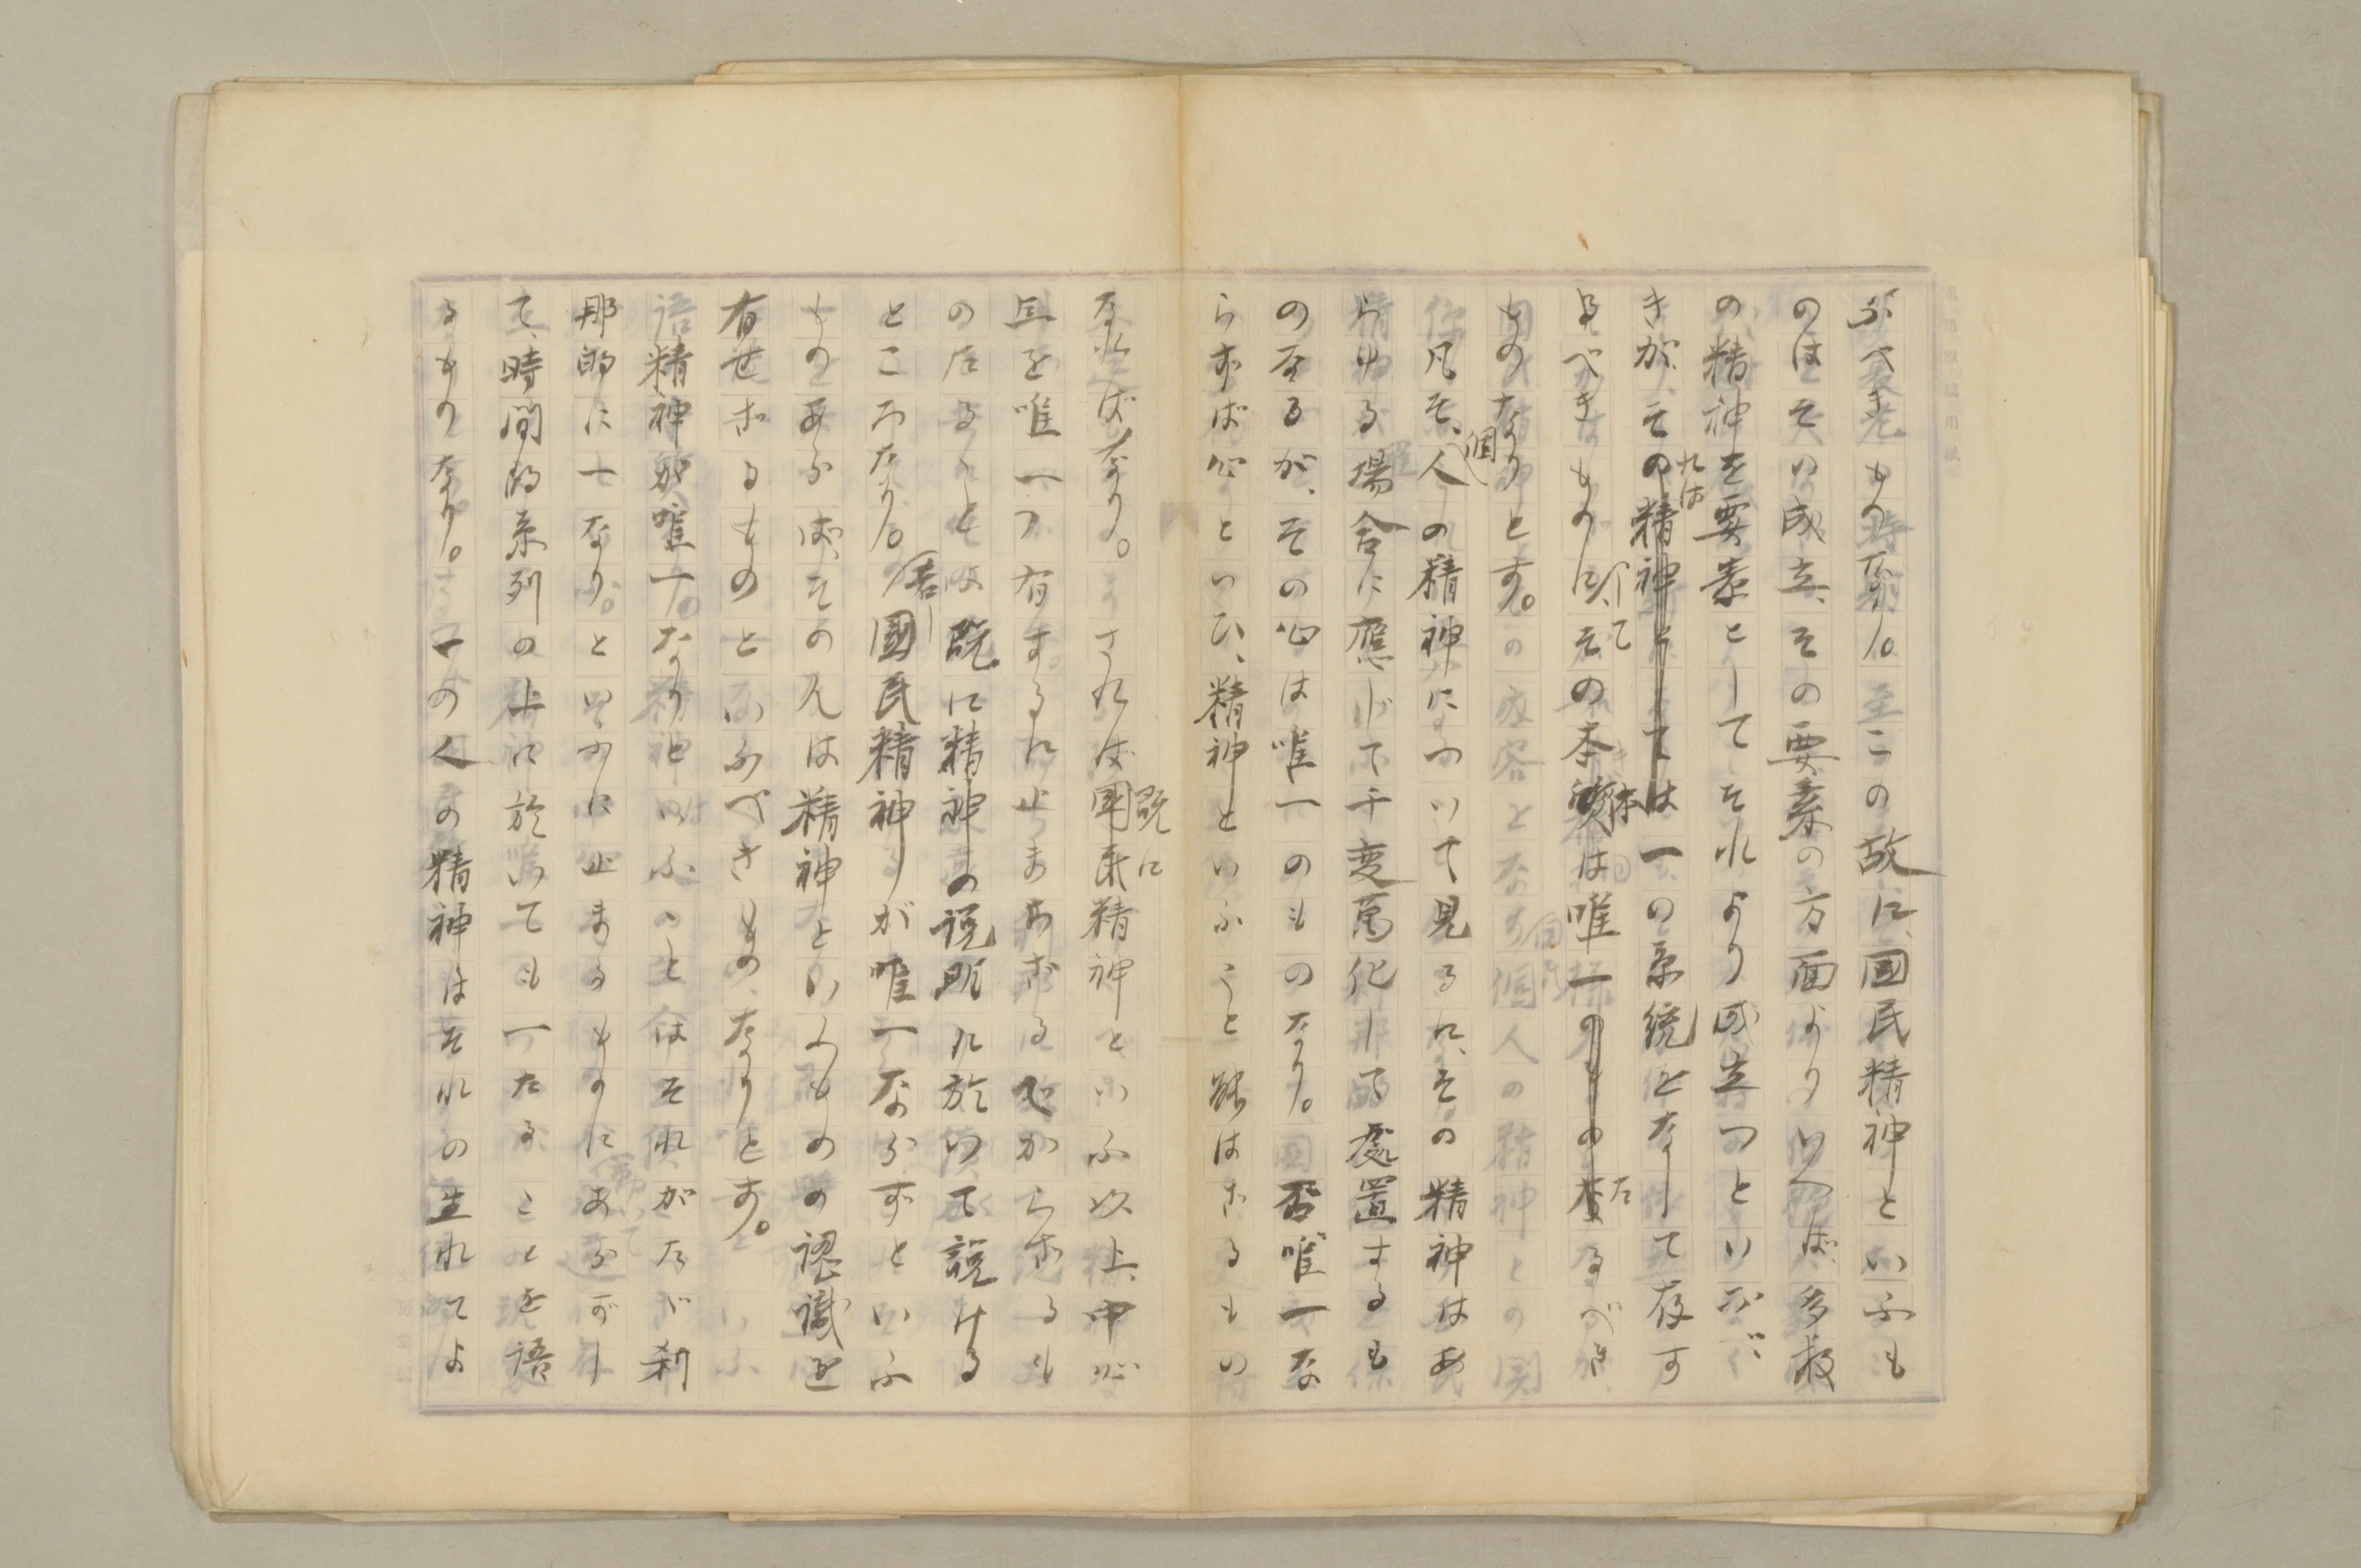 ぶべきものなり。この故に、国民精神といふも
のはその成立、その要素の方面よりいへば、多数
の精神を要素としてそれより成立つといふべ
きが、それは一の系統をなして存す
るべきものにして、その本質は唯一のたるべき
ものなりとす。
凡そ、個人の精神について見るに、その精神はあ
らゆる場合に應じて千変萬化して處置するも
のなるが、その心は唯一のものなり。否唯一な
らずば心といひ、精神といふこと能はざるもの
なればなり。されば既に国民精神といふ以上、中心
点を唯一つ有するに止まらざるべからざるも
のなること既に精神の説明に於いて説ける
ところなり。若し國民精神が唯一ならずといふ
ものあらば、その人は精神といふものの認識を
有せざるものといふべきものなりとす。
精神が唯一なりといふことはそれがたゞ刹
那的に一なり。といふに止まるものにあらずし
て、時間的系列の上に於いても一たることを語
るものなり。一の人の精神はそれの生れてよ